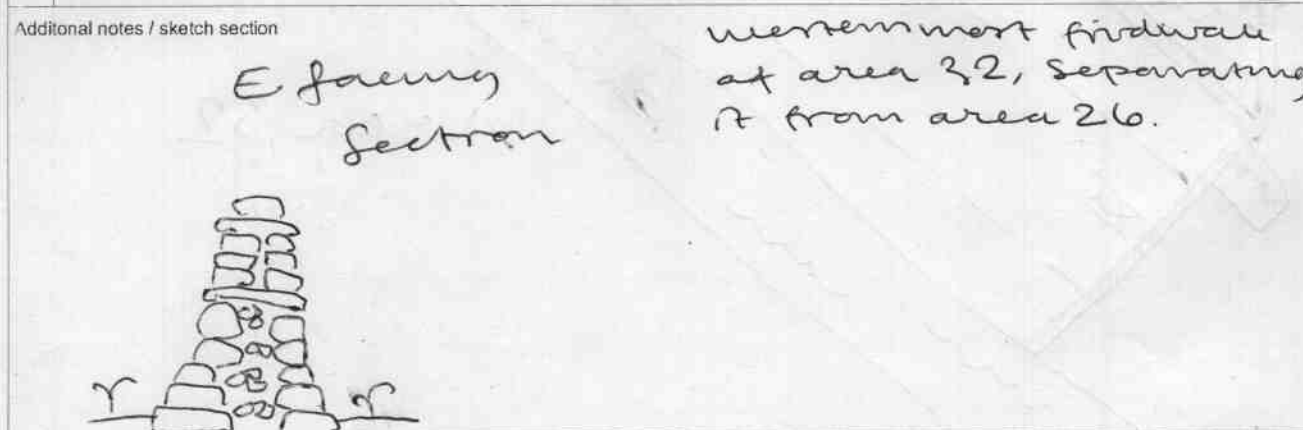 Additonal notes / sketch section
E facing
Section
westernmost fieldwall
of area 32, separating
it from area 26.